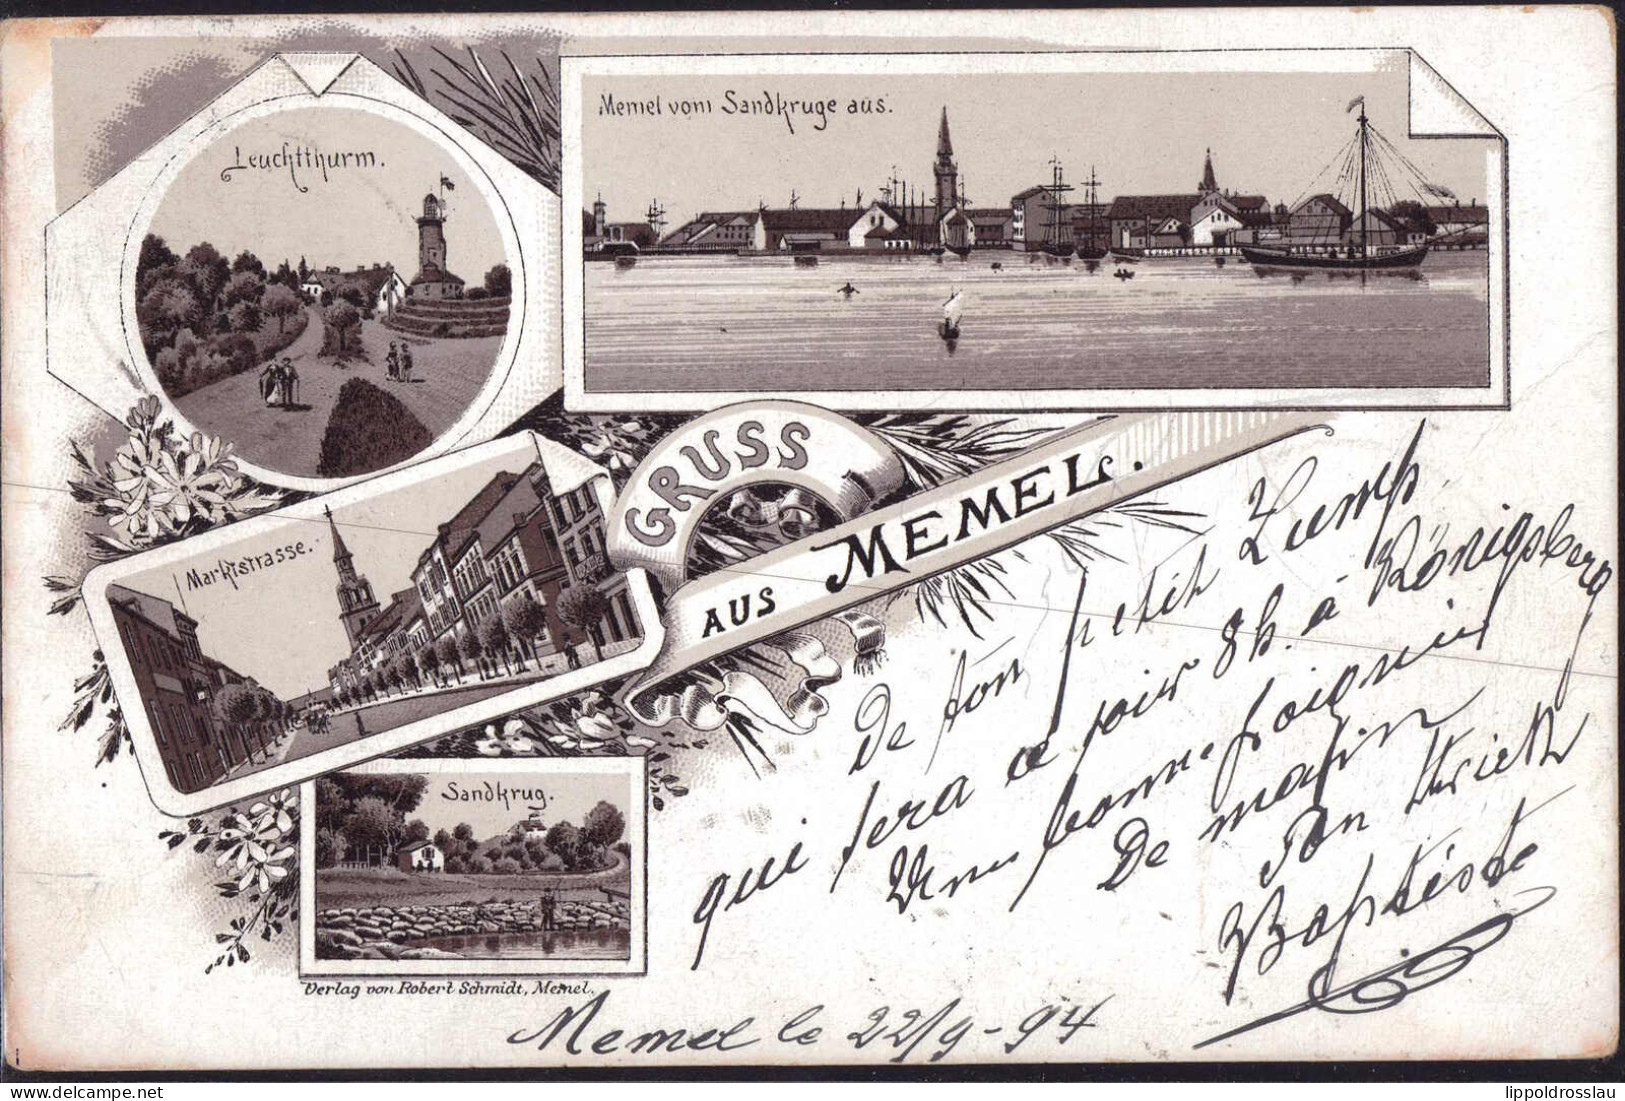 Leuchtthurm.
Memel vom Sandkruge aus.
Marktstrasse.
GRUSS
AUS MEMEL.
Sandkrug.
Verlag von Robert Schmidt, Memel.
De ton petit Lump
qui sera ce soir 8h. à Königsberg
Une bonne poignée
De main
Ton
Baptiste
Memel le 22/9-94
lippoldrosslau